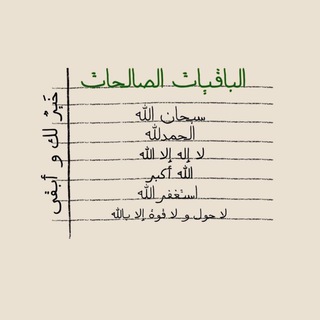 الباقيات الصالحات
سبحان الله
الحمدلله
لا إله إلا الله
الله أكبر
استغفر الله
لا حول و لا قوة إلا بالله
خير لك و أبقى